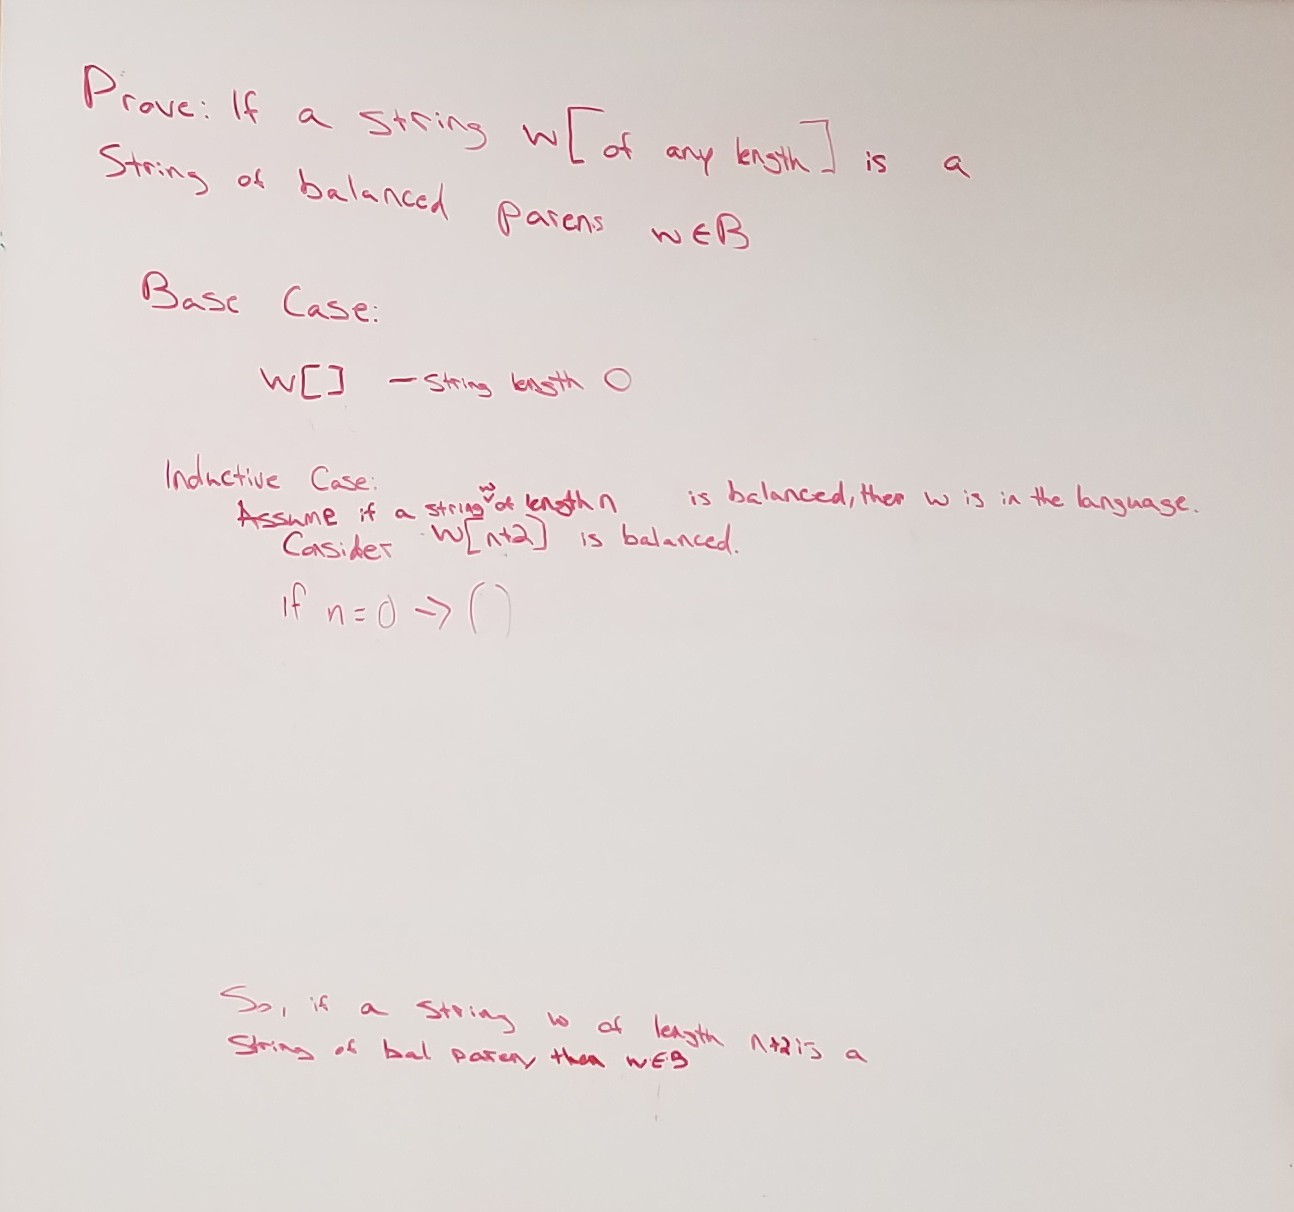 Prove: If a string w[of any length] is a
String of balanced parens w∈B
Base Case:
w[] - string length 0
Inductive Case:
Assume if a string w of length n is balanced, then w is in the language.
Consider w[n+2] is balanced.
If n=0 → ()
So, if a string w of length n+2 is a
String of bal paren, then w∈B